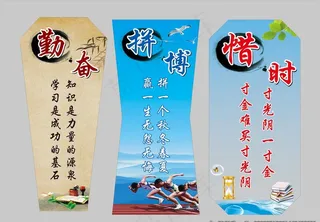 勤奋
知识是力量的源泉
学习是成功的基石
拼搏
拼一个秋冬春夏
赢一生无怨无悔
惜时
寸光阴一寸金
寸金难买寸光阴